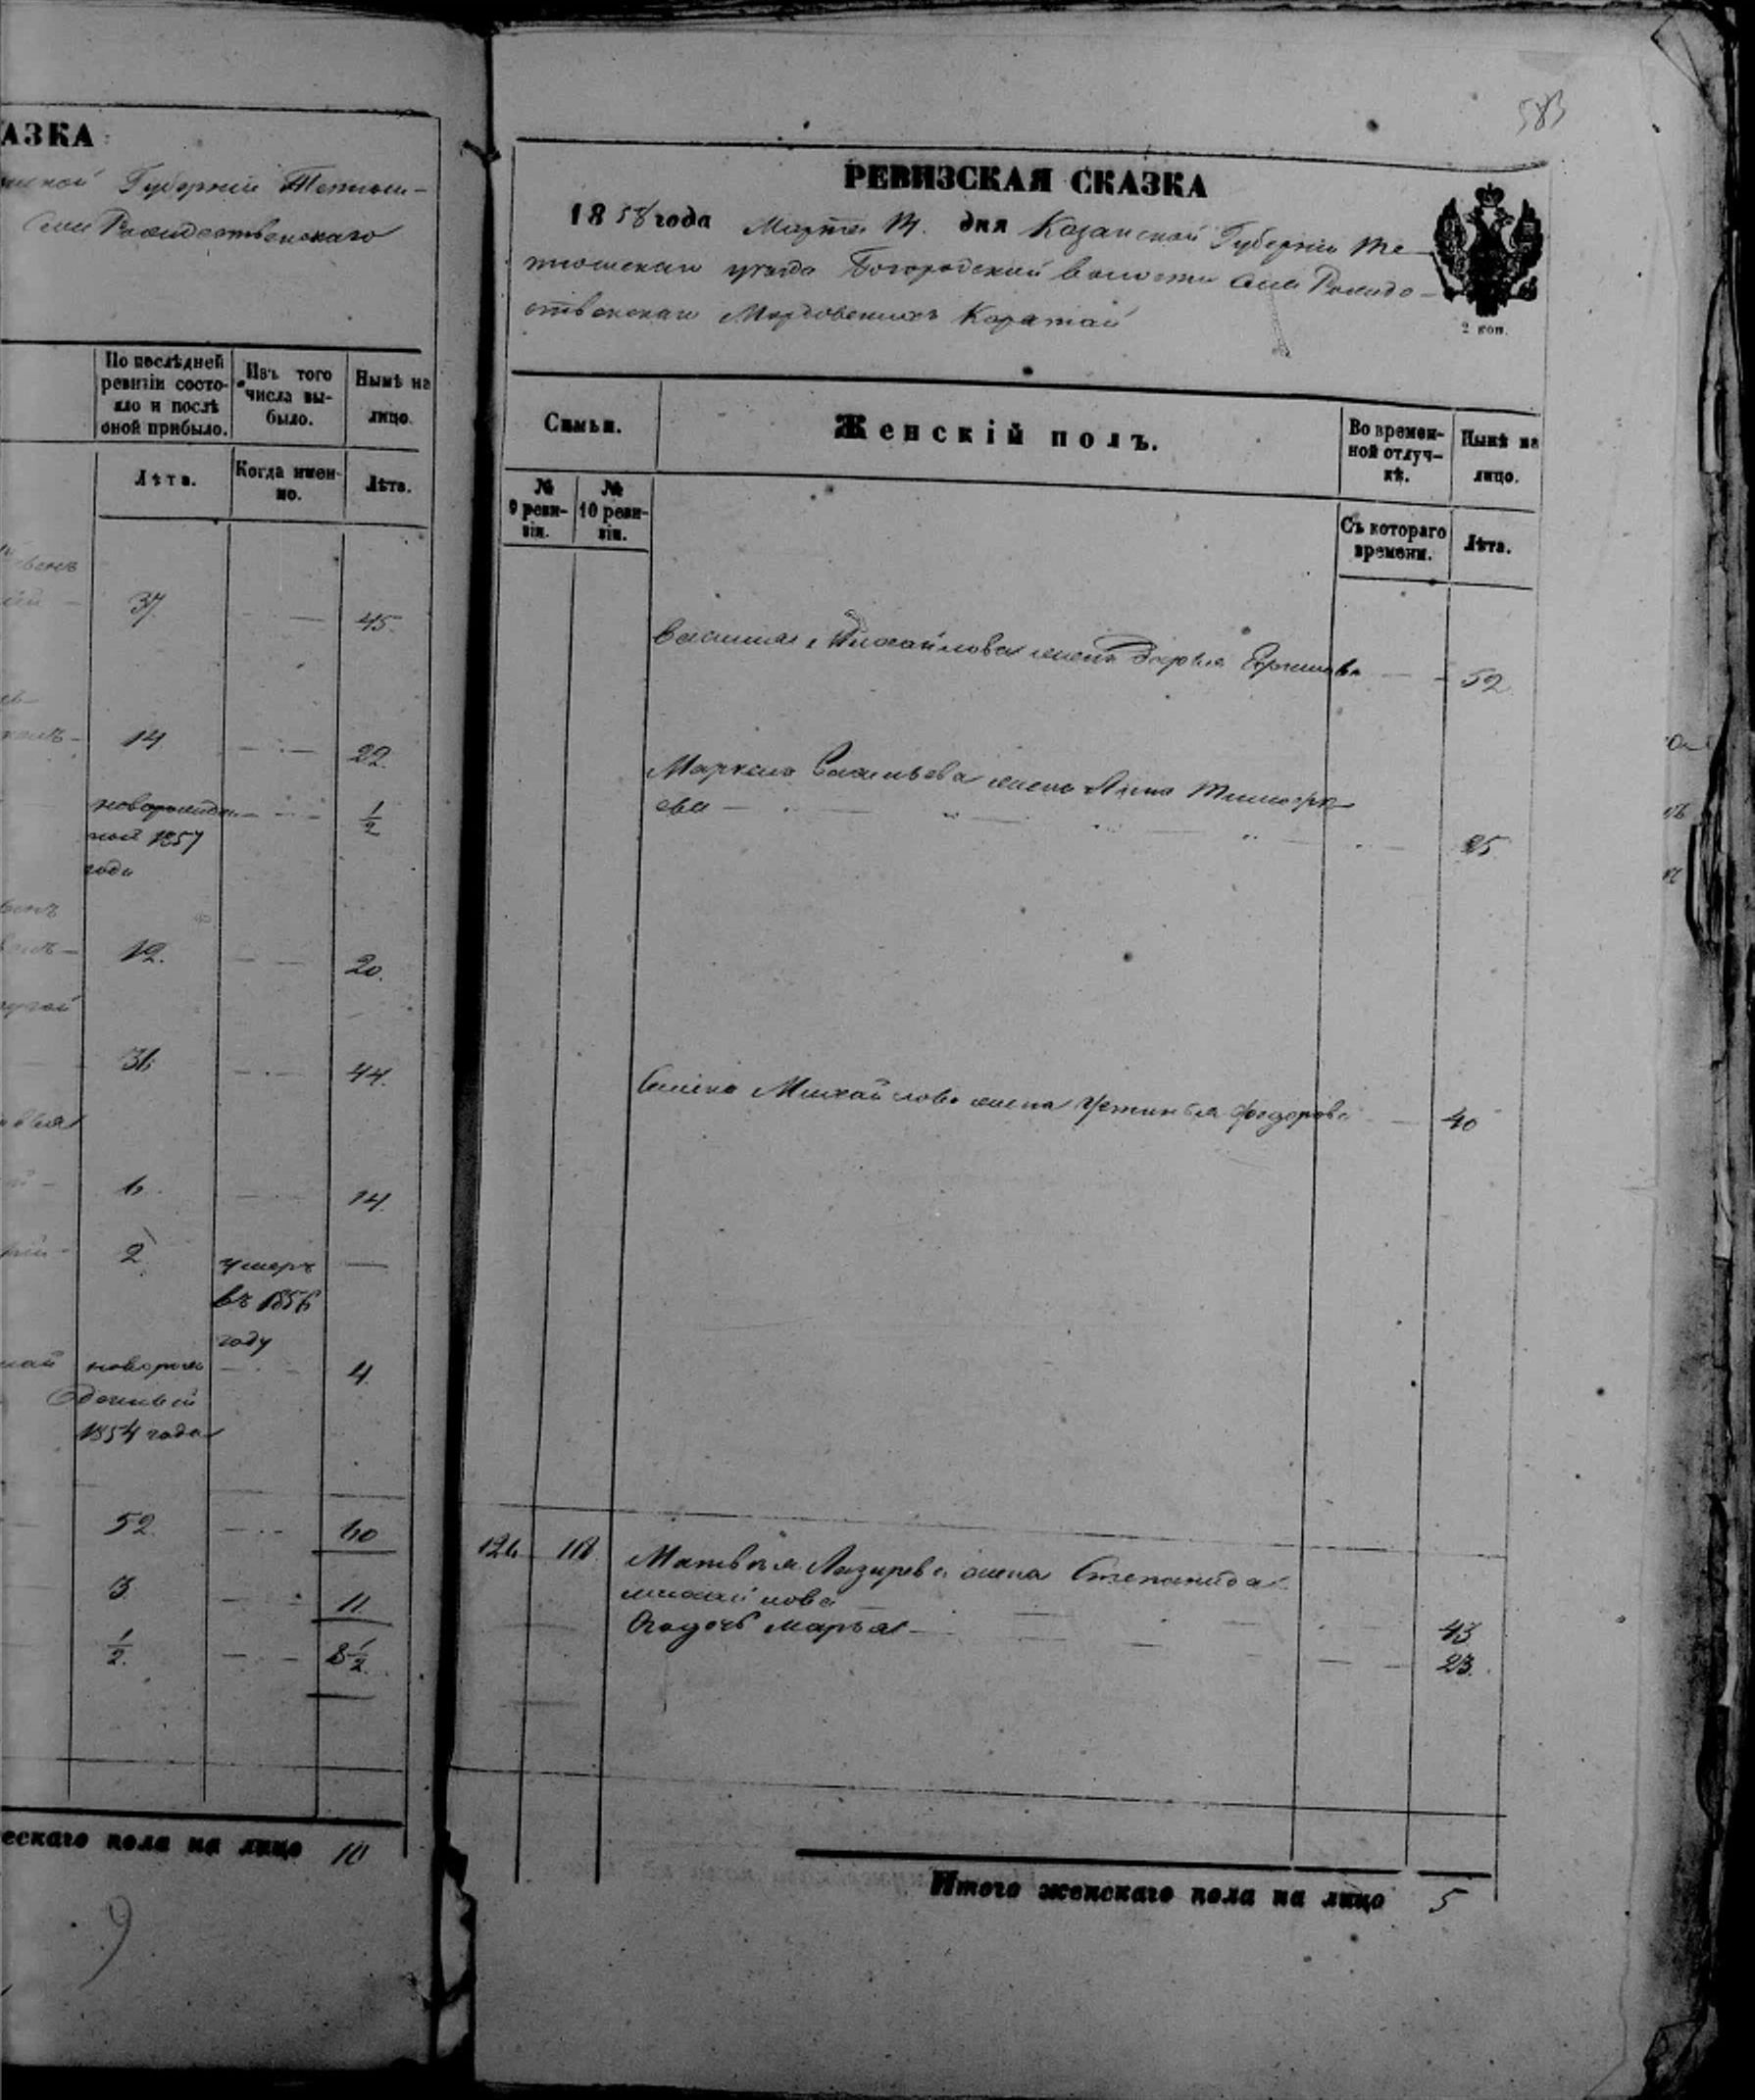 АЗКА
Губерніи Тетюш-
Рождественскаго
По послѣдней
ревизіи состо-
яло и послѣ
оной прибыло.
Изъ того
числа вы-
было.
Нынѣ на
лицо.
Лѣта.
Когда имен-
но.
Лѣта.
37.
45.
14
22.
новорожден-
ной 1857
года
1/2
12.
20.
36
44.
6.
14.
2
умеръ
въ 1856
году
новорож
денный
1854 года
4.
52.
60
3.
11.
1/2.
8 1/2.
ескаго пола на лицо 10
9
583
РЕВИЗСКАЯ СКАЗКА
1858 года Марта дня Казанской Губерніи Те-
тюшскаго уѣзда Богородской волости села Рождe-
ственскаго Мордовскихъ Каратай
2 коп.
Семьи.
Женскій полъ.
Во времен-
ной отлуч-
кѣ.
Нынѣ на
лицо.
№
9 реви-
зіи.
№
10 реви-
зіи.
Съ котораго
времени.
Лѣта.
Михайлова жена Дарья 52
Васильева жена Анна Тимофе
ева
25
Семена Михайлова жена Устинья Федорова 40
124 118. Матвѣя Лазарева жена Степанида
михайлова 43
Его дочь Марья 23.
Итого женскаго пола на лицо 5